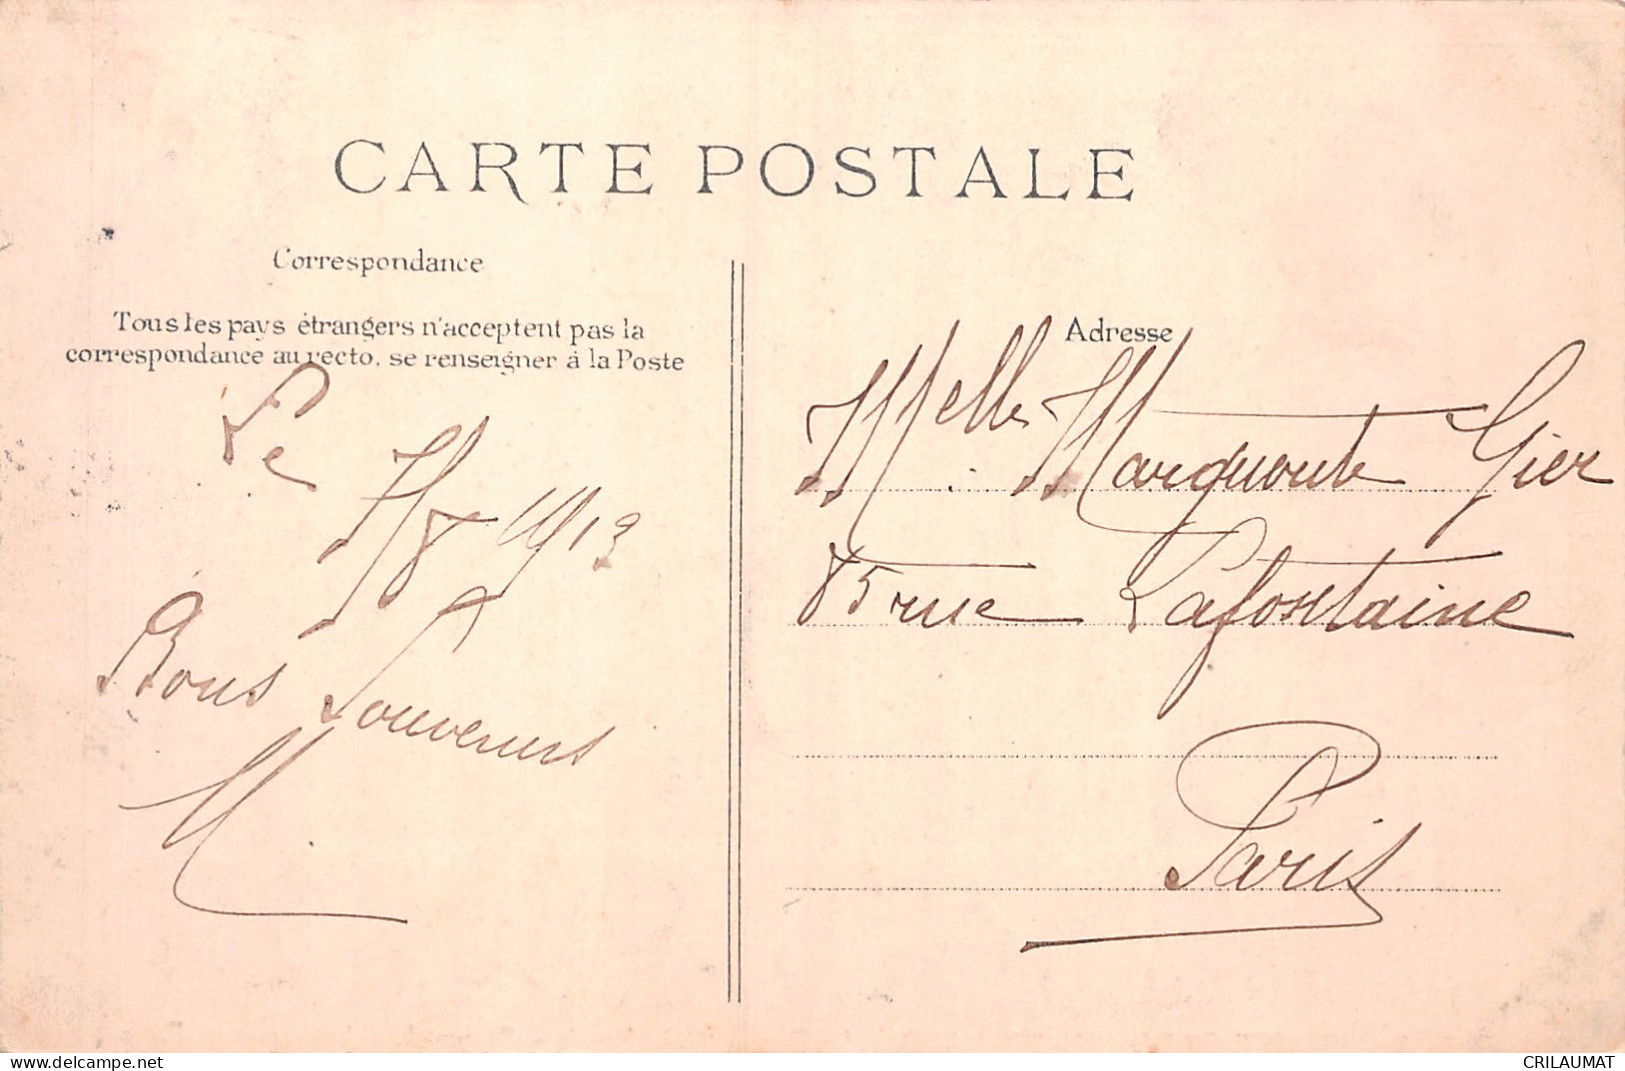 CARTE POSTALE
Correspondance
Tous les pays étrangers n'acceptent pas la
correspondance au recto, se renseigner à la Poste
Le
7/8 1913
Bons Souvenirs
M.
Adresse
Melle Marguerite Gier
85 rue Lafontaine
Paris
www.delcampe.net
CRILAUMAT